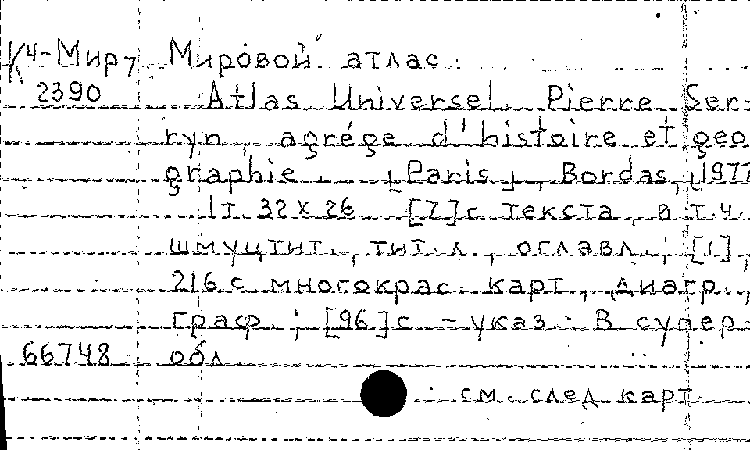 К4-Мир, Мировой атлас.
2390 Atlas Universel. Pierre Ser-
ryn, agrége d'histoire et geo
graphie. [Paris], Bordas, 1977
1т. 32 x 26 [7]с текста, в т.ч.
шмуцтит., тит.л., оглавл., [1],
216 с многокрас. карт, диагр.,
граф.; [96]с - указ. В супер-
66748 обл
см. след карт